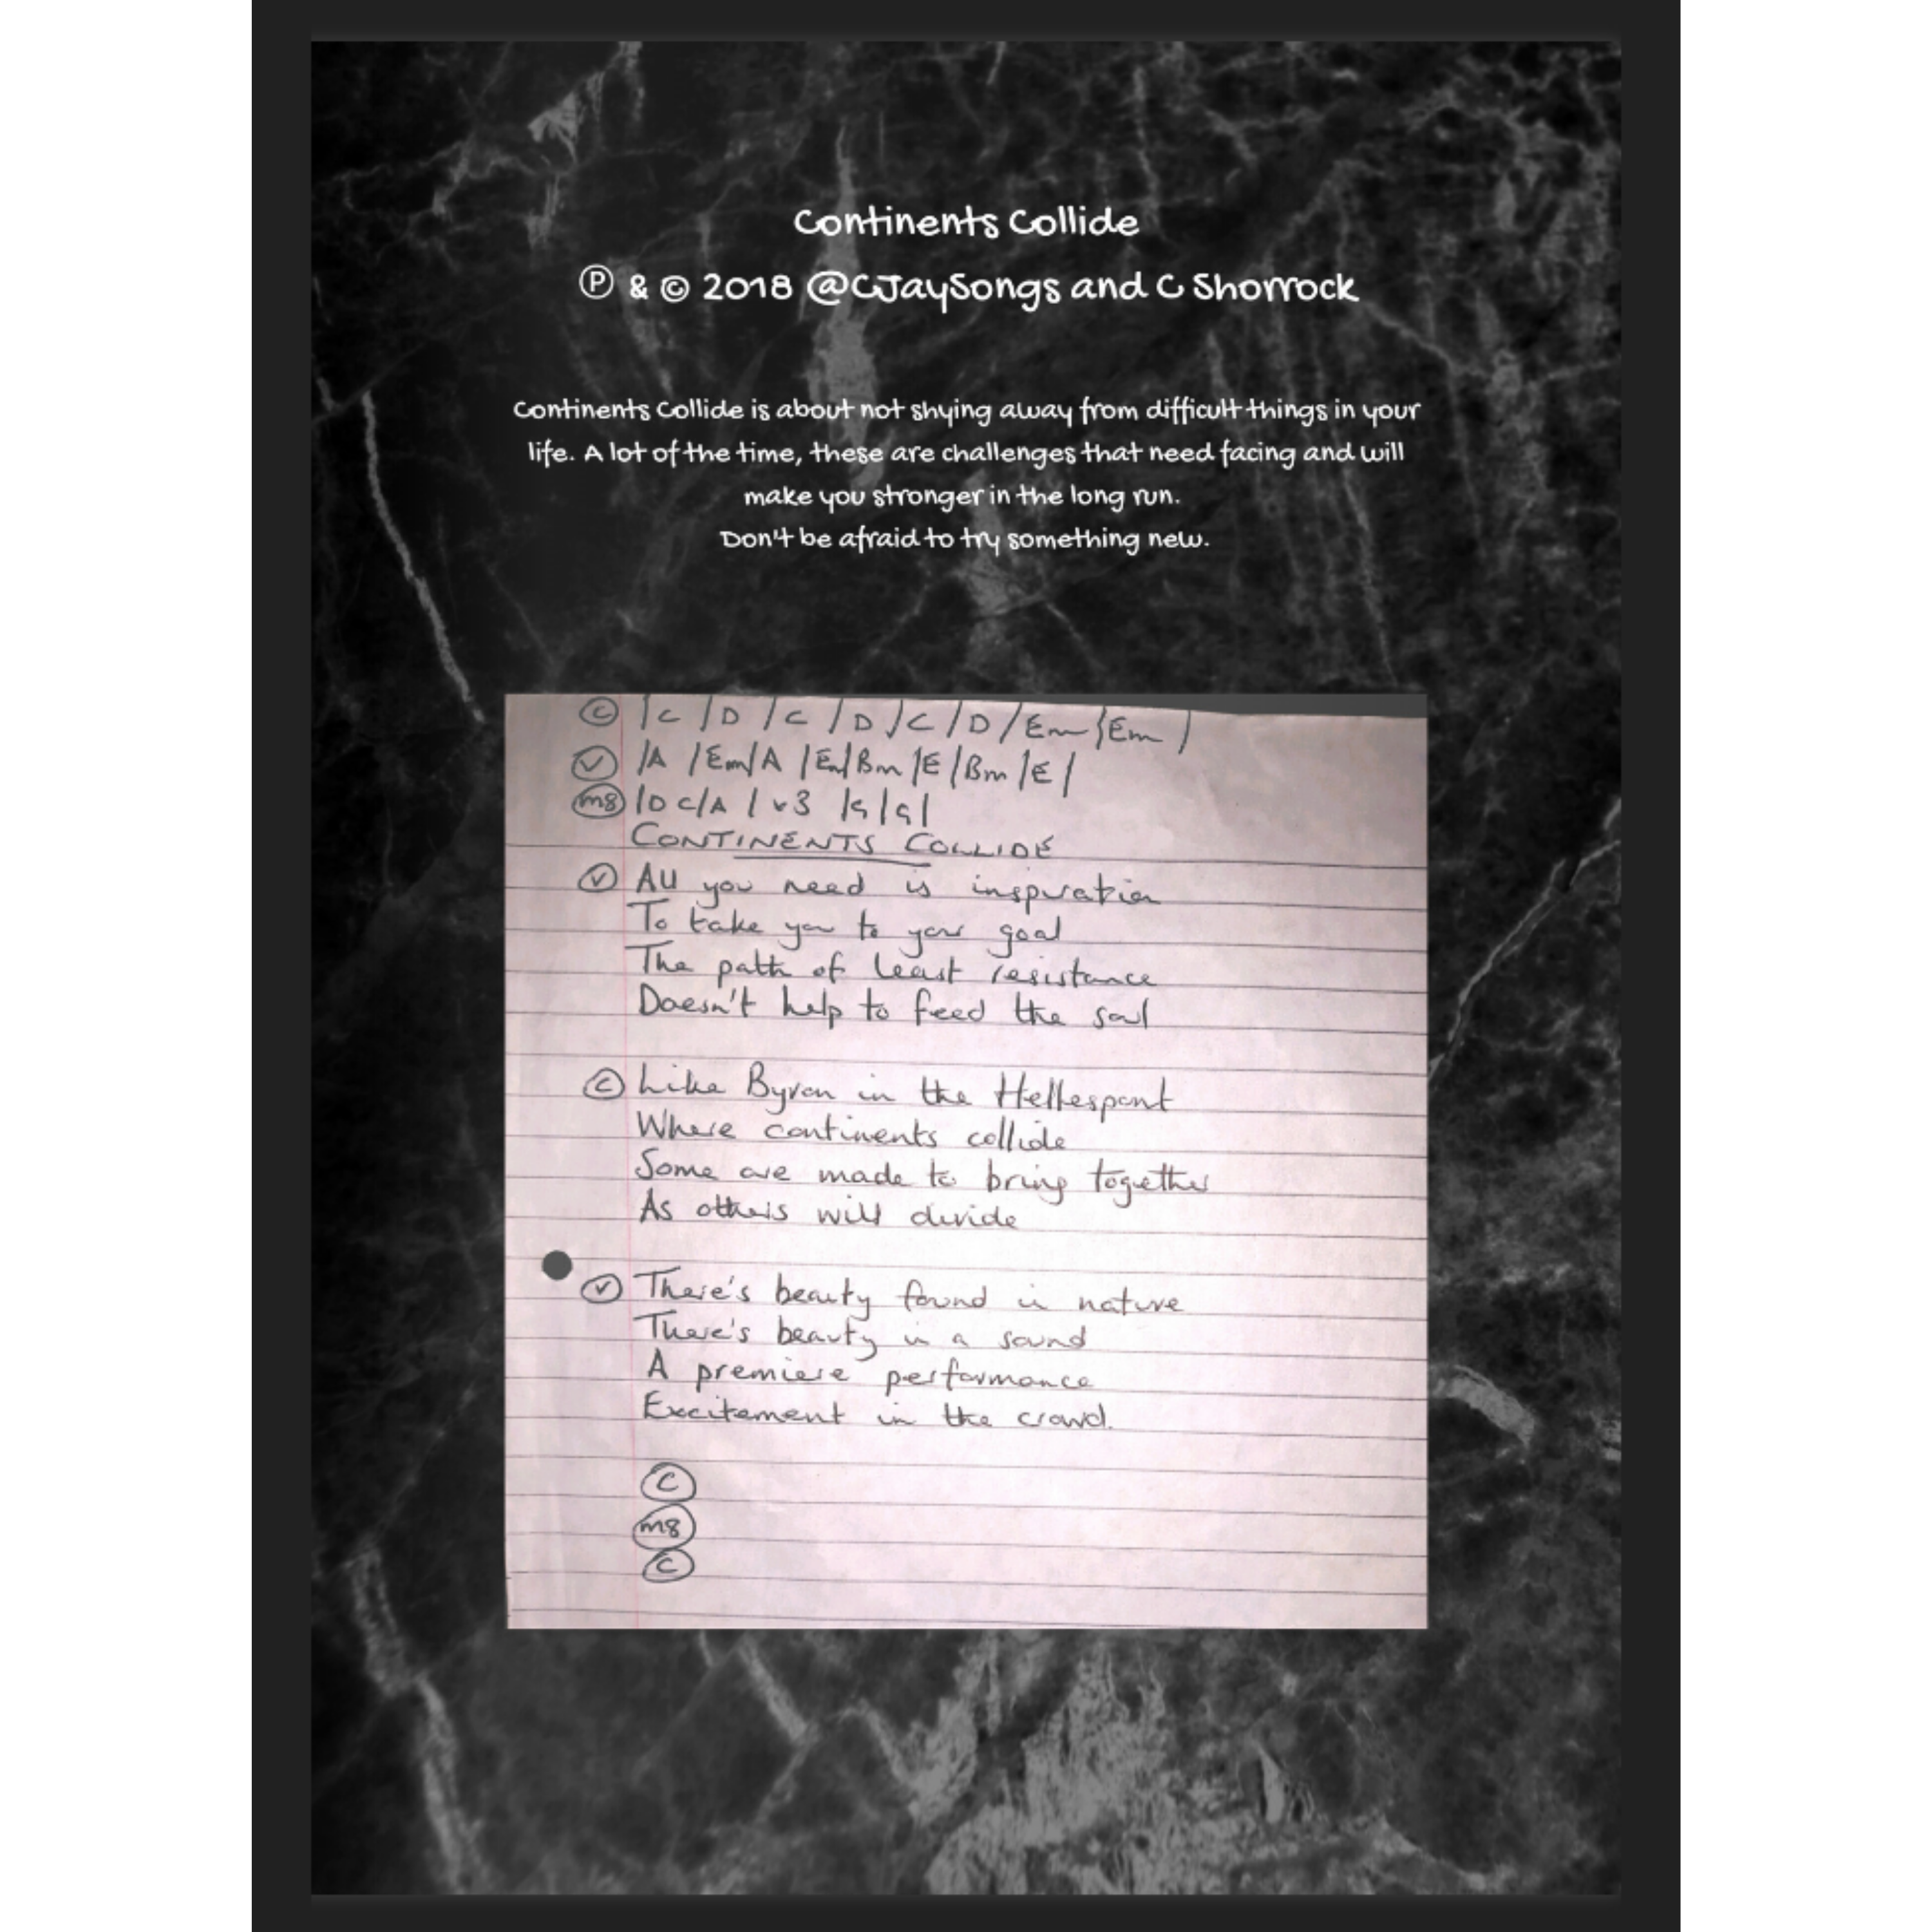 Continents Collide
Ⓟ & © 2018 @CJaySongs and C Shorrock
Continents Collide is about not shying away from difficult things in your
life. A lot of the time, these are challenges that need facing and will
make you stronger in the long run.
Don't be afraid to try something new.
Ⓒ | C | D | C | D | C | D | Em | Em |
Ⓥ | A | Em | A | Em | Bm | E | Bm | E |
m8 | D C | A | v3 | G | G |
CONTINENTS COLLIDE
Ⓥ All you need is inspiration
To take you to your goal
The path of least resistance
Doesn't help to feed the soul
Ⓒ Like Byron in the Hellespont
Where continents collide
Some are made to bring together
As others will divide
Ⓥ There's beauty found in nature
There's beauty in a sound
A premiere performance
Excitement in the crowd.
Ⓒ
m8
Ⓒ